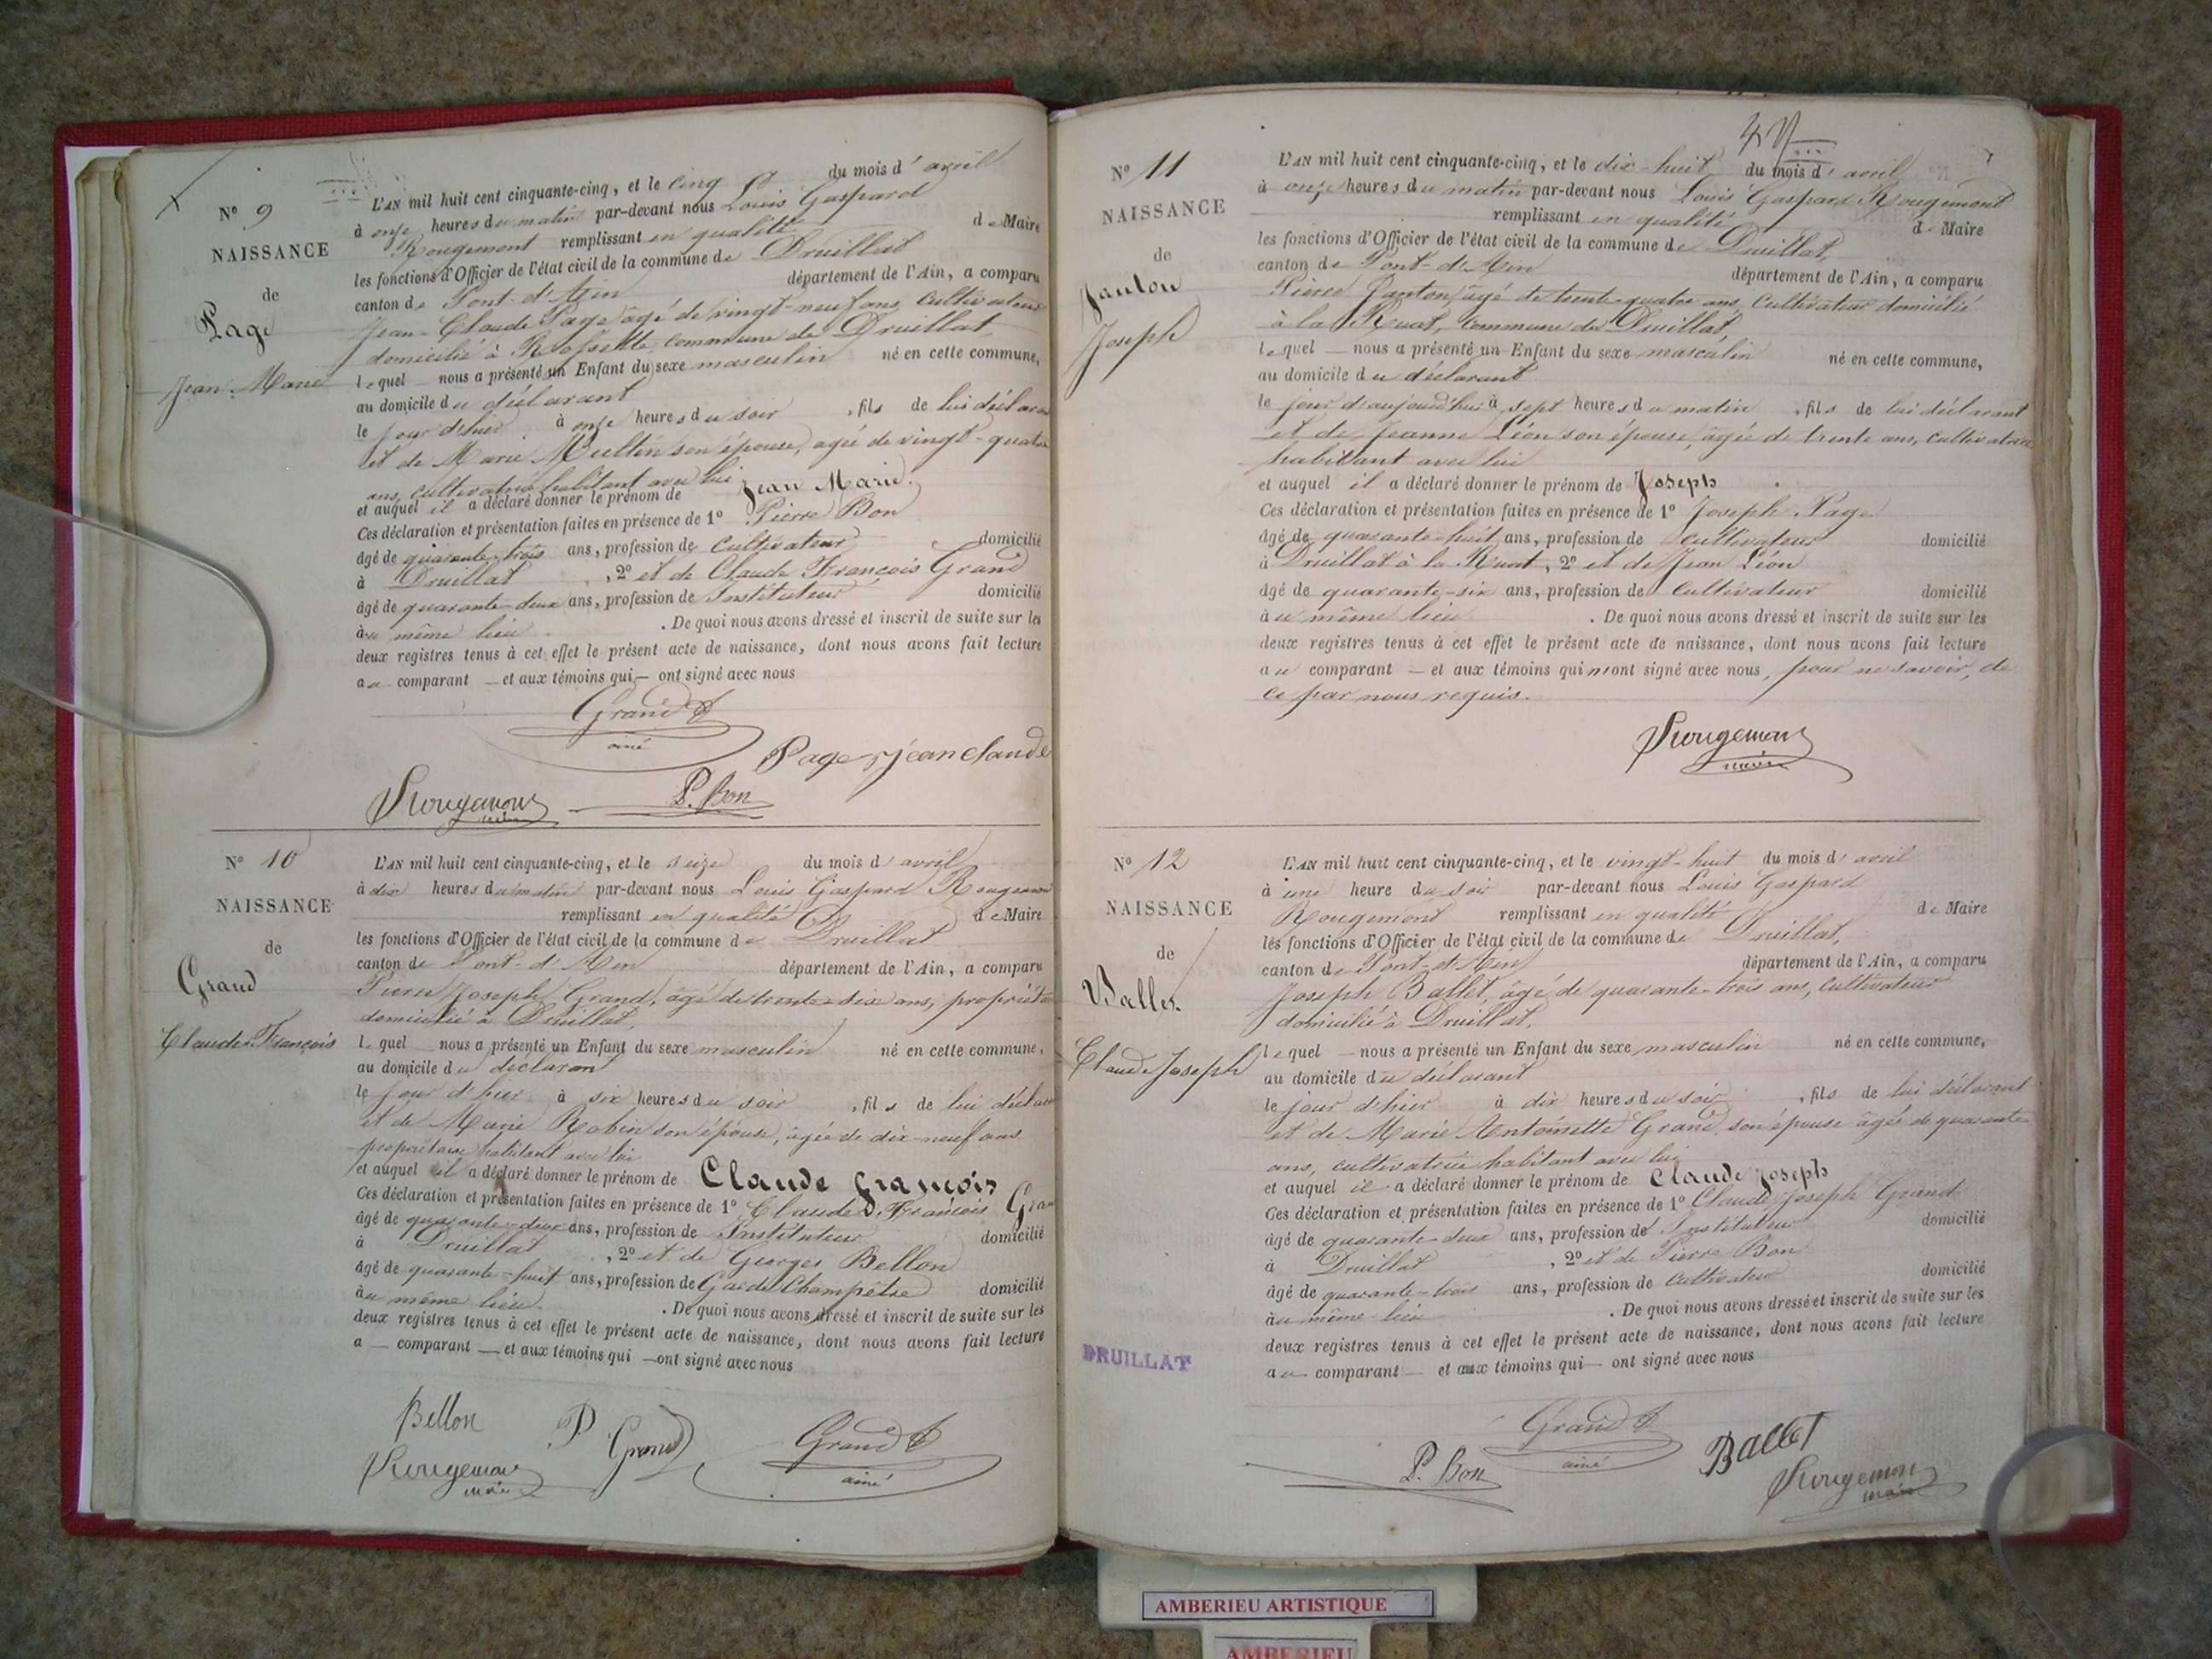 N° 9
NAISSANCE
de
Page
Jean Marie
L'AN mil huit cent cinquante-cinq, et le cinq du mois d'avril
à onze heures du matin par-devant nous Louis Gaspard
Rougemont remplissant en qualité de Maire
les fonctions d'Officier de l'état civil de la commune de Druillat
canton de Pont-d'Ain département de l'Ain, a comparu
Jean-Claude Page âgé de vingt-neuf ans, cultivateur
domicilié à Rossette commune de Druillat
lequel nous a présenté un Enfant du sexe masculin né en cette commune,
au domicile du déclarant
le jour d'hier à onze heures du soir, fils de lui déclarant
et de Marie son épouse, agée de vingt-quatre
ans, cultivatrice habitant avec lui
et auquel il a déclaré donner le prénom de Jean Marie.
Ces déclaration et présentation faites en présence de 1° Pierre Bon
âgé de quarante-trois ans, profession de Cultivateur domicilié
à Druillat, 2° et de Claude François Grand
âgé de quarante-deux ans, profession de Instituteur domicilié
au même lieu. De quoi nous avons dressé et inscrit de suite sur les
deux registres tenus à cet effet le présent acte de naissance, dont nous avons fait lecture
au comparant — et aux témoins qui — ont signé avec nous
Grand
ainé
Page jean claude
Rougemont
maire
P. Bon
N° 10
NAISSANCE
de
Grand
Claude François
L'AN mil huit cent cinquante-cinq, et le seize du mois d'avril
à dix heures du matin par-devant nous Louis Gaspard Rougemont
remplissant en qualité de Maire
les fonctions d'Officier de l'état civil de la commune de Druillat
canton de Pont-d'Ain département de l'Ain, a comparu
Pierre Joseph Grand, âgé de trente-six ans, propriétaire
domicilié à Druillat,
lequel nous a présenté un Enfant du sexe masculin né en cette commune,
au domicile du déclarant
le jour d'hier à six heures du soir, fils de lui déclarant
et de Marie Robin son épouse, âgée de dix-neuf ans
propriétaire habitant avec lui
et auquel il a déclaré donner le prénom de Claude François
Ces déclaration et présentation faites en présence de 1° Claude François Grand
âgé de quarante-deux ans, profession de Instituteur domicilié
à Druillat, 2° et de Georges Bellon
âgé de quarante-huit ans, profession de Garde Champêtre domicilié
au même lieu. De quoi nous avons dressé et inscrit de suite sur les
deux registres tenus à cet effet le présent acte de naissance, dont nous avons fait lecture
a — comparant — et aux témoins qui — ont signé avec nous
Bellon
P Grand
Grand
ainé
Rougemont
maire
N° 11
NAISSANCE
de
Janton
Joseph
L'AN mil huit cent cinquante-cinq, et le dix-huit du mois d'avril
à onze heures du matin par-devant nous Louis Gaspard Rougemont
remplissant en qualité de Maire
les fonctions d'Officier de l'état civil de la commune de Druillat,
canton de Pont-d'Ain département de l'Ain, a comparu
Pierre Janton, âgé de trente-quatre ans, cultivateur domicilié
à la Ruat, commune de Druillat,
lequel — nous a présenté un Enfant du sexe masculin né en cette commune,
au domicile du déclarant
le jour d'aujourd'hui à sept heures du matin, fils de lui déclarant
et de Jeanne Léon son épouse, âgée de trente ans, cultivatrice
habitant avec lui
et auquel il a déclaré donner le prénom de Joseph
Ces déclaration et présentation faites en présence de 1° Joseph Page
âgé de quarante-huit ans, profession de cultivateur domicilié
à Druillat à la Ruat, 2° et de Jean Léon
âgé de quarante-six ans, profession de cultivateur domicilié
au même lieu. De quoi nous avons dressé et inscrit de suite sur les
deux registres tenus à cet effet le présent acte de naissance, dont nous avons fait lecture
au comparant — et aux témoins qui n'ont signé avec nous, pour ne savoir, de
ce par nous requis.
Rougemont
maire
N° 12
NAISSANCE
de
Ballet
Claude Joseph
L'AN mil huit cent cinquante-cinq, et le vingt-huit du mois d'avril
à une heure du soir par-devant nous Louis Gaspard
Rougemont remplissant en qualité de Maire
les fonctions d'Officier de l'état civil de la commune de Druillat,
canton de Pont-d'Ain département de l'Ain, a comparu
Joseph Ballet, âgé de quarante-trois ans, cultivateur
domicilié à Druillat,
lequel — nous a présenté un Enfant du sexe masculin né en cette commune,
au domicile du déclarant
le jour d'hier à dix heures du soir, fils de lui déclarant
et de Marie Antoinette Grand son épouse âgée de quarante
ans, cultivatrice habitant avec lui
et auquel il a déclaré donner le prénom de Claude Joseph
Ces déclaration et présentation faites en présence de 1° Claude Joseph Grand
âgé de quarante-deux ans, profession de Instituteur domicilié
à Druillat, 2° et de Pierre Bon
âgé de quarante-trois ans, profession de cultivateur domicilié
au même lieu. De quoi nous avons dressé et inscrit de suite sur les
deux registres tenus à cet effet le présent acte de naissance, dont nous avons fait lecture
au comparant — et aux témoins qui — ont signé avec nous
DRUILLAT
Grand
ainé
P. Bon
Ballet
Rougemont
maire
AMBERIEU ARTISTIQUE
AMBERIEU